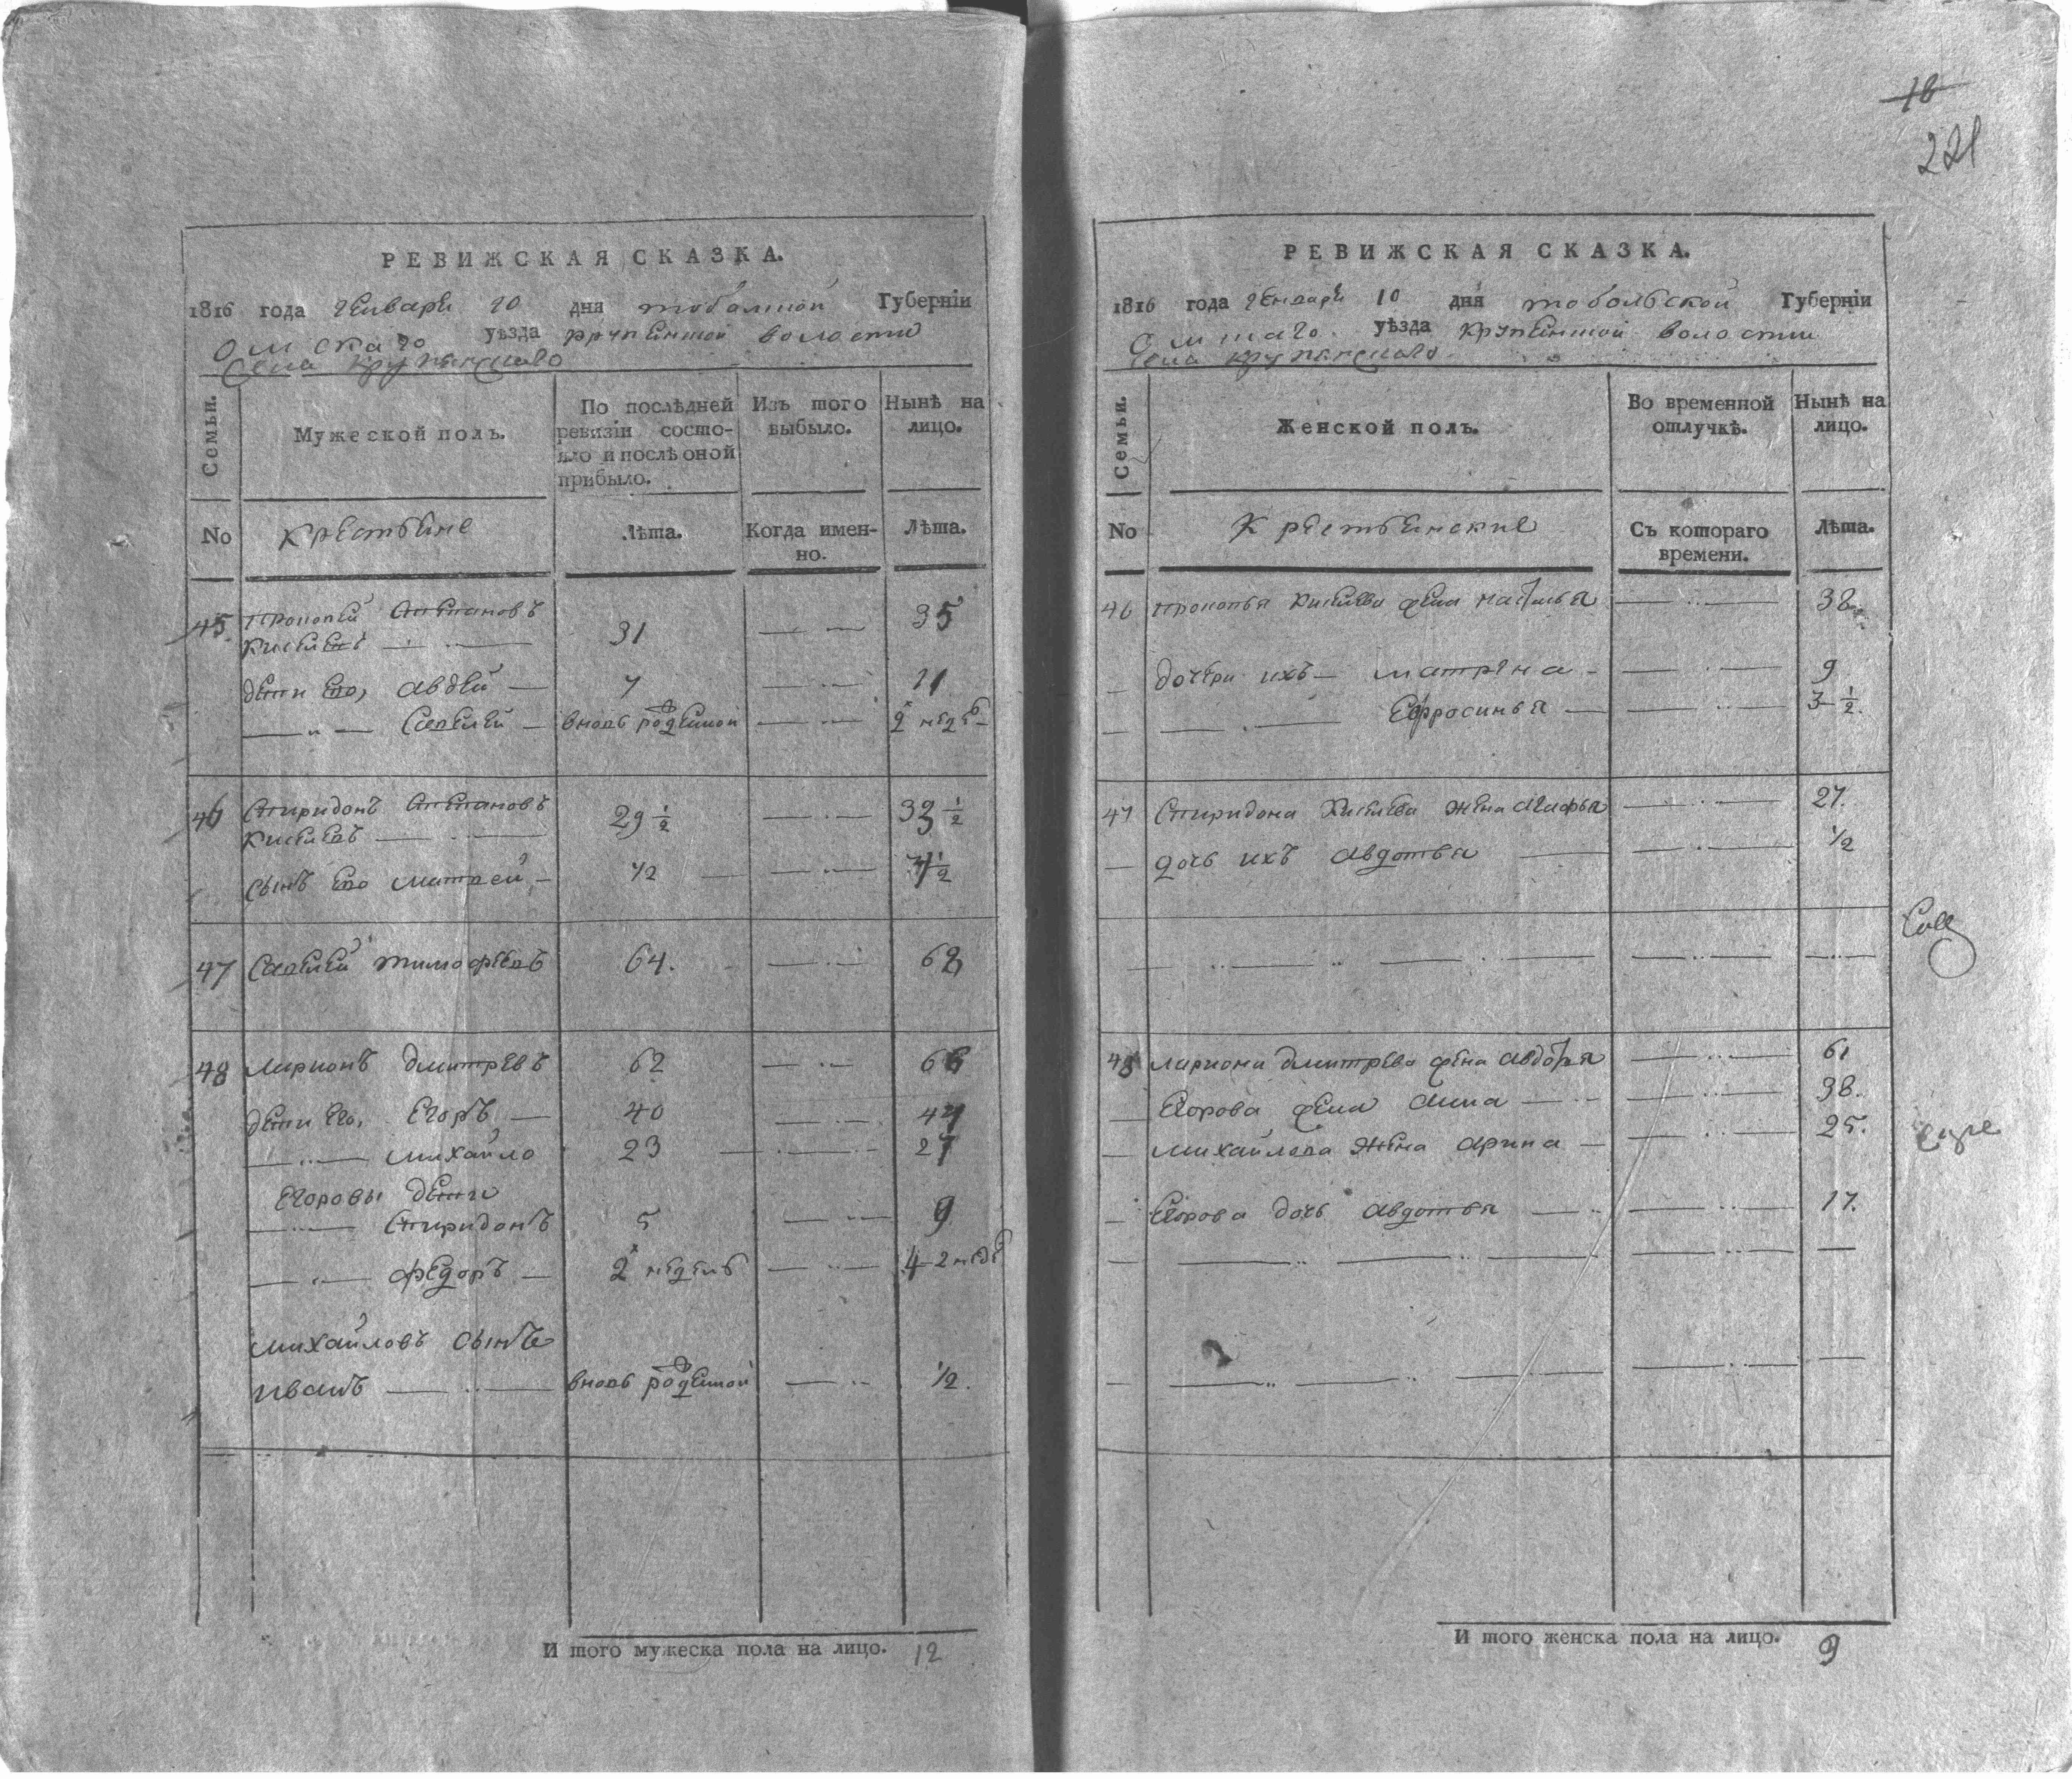 РЕВИЖСКАЯ СКАЗКА.
1816 года Генваря 10 дня тобольской Губерніи
Омскаго уѣзда крупенской волости
Села крупенскаго
Семьи.
Мужеской полъ.
По послѣдней ревизіи состо-
яло и послѣ оной
прибыло.
Изъ того
выбыло.
Нынѣ на
лицо.
No
крестьяне
Лѣта.
Когда имен-
но.
Лѣта.
45 Прокопей Степановъ
Киселевъ 31 35
дети его, авдей 7 11
Савелей вновь рожденной 2 недѣ
46 Спиридонъ Степановъ
Киселевъ 29 1/2 33 1/2
сынъ его митрей 1/2 4 1/2
47 Савелей тимофеевъ 64. 68
48 ларионъ дмитревъ 62 66
дети его, Егоръ 40 44
михайло 23 27
Егоровы дети
Спиридонъ 5 9
федоръ 2 недели 4 2 недѣ
михайловъ сынъ
иванъ вновь рожденной 1/2.
И того мужеска пола на лицо. 12
16
221
РЕВИЖСКАЯ СКАЗКА.
1816 года Генваря 10 дня тобольской Губерніи
Омскаго уѣзда крупенской волости
Села крупенскаго
Семьи.
Женской полъ.
Во временной
отлучкѣ.
Нынѣ на
лицо.
No
Крестьянские
Съ котораго
времени.
Лѣта.
46 прокопья Киселева жена настасья 38.
дочери ихъ матрена 9
Ефросинья 3 1/2.
47 Спиридона Киселева жена агафья 27.
дочь ихъ авдотья 1/2
48 лариона дмитрева жена авдотья 61
Егорова жена анна 38.
михайлова жена арина 25.
Егорова дочь авдотья 17.
И того женска пола на лицо. 9